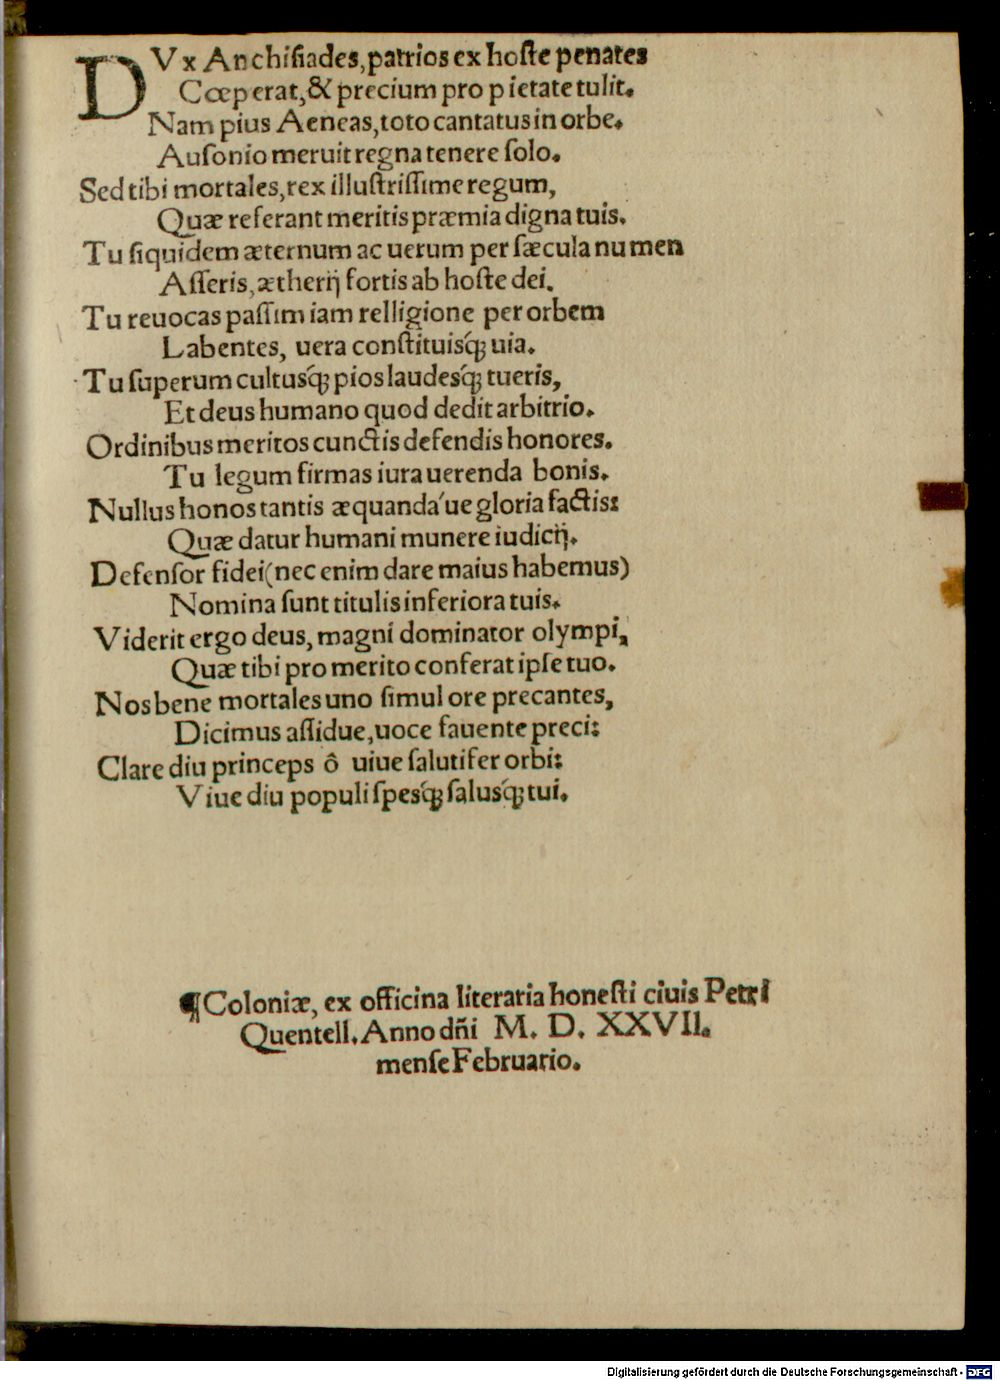 DVx Anchisiades, patrios ex hoste penates
Cœperat, & precium pro pietate tulit.
Nam pius Aeneas, toto cantatus in orbe.
Auſonio meruit regna tenere ſolo.
Sed tibi mortales, rex illuſtriſſime regum,
Quæ referant meritis præmia digna tuis.
Tu ſiquidem æternum ac uerum per ſæcula numen
Aſſeris, ætherij fortis ab hoſte dei.
Tu reuocas paſſim iam relligione per orbem
Labentes, uera conſtituisq́; uia.
Tu ſuperum cultusq́; pios laudesq́; tueris,
Et deus humano quod dedit arbitrio.
Ordinibus meritos cunctis defendis honores.
Tu legum firmas iura uerenda bonis.
Nullus honos tantis æquanda´ue gloria factis:
Quæ datur humani munere iudicij.
Defenſor fidei (nec enim dare maius habemus)
Nomina ſunt titulis inferiora tuis.
Viderit ergo deus, magni dominator olympi,
Quæ tibi pro merito conferat ipſe tuo.
Nos bene mortales uno ſimul ore precantes,
Dicimus aſſidue, uoce fauente preci:
Clare diu princeps ô uiue ſalutifer orbi:
Viue diu populi ſpesq́; ſalusq́; tui.
¶Coloniæ, ex officina literaria honeſti ciuis Petri
Quentell. Anno dñi M. D. XXVII.
menſe Februario.
Digitalisierung gefördert durch die Deutsche Forschungsgemeinschaft - DFG